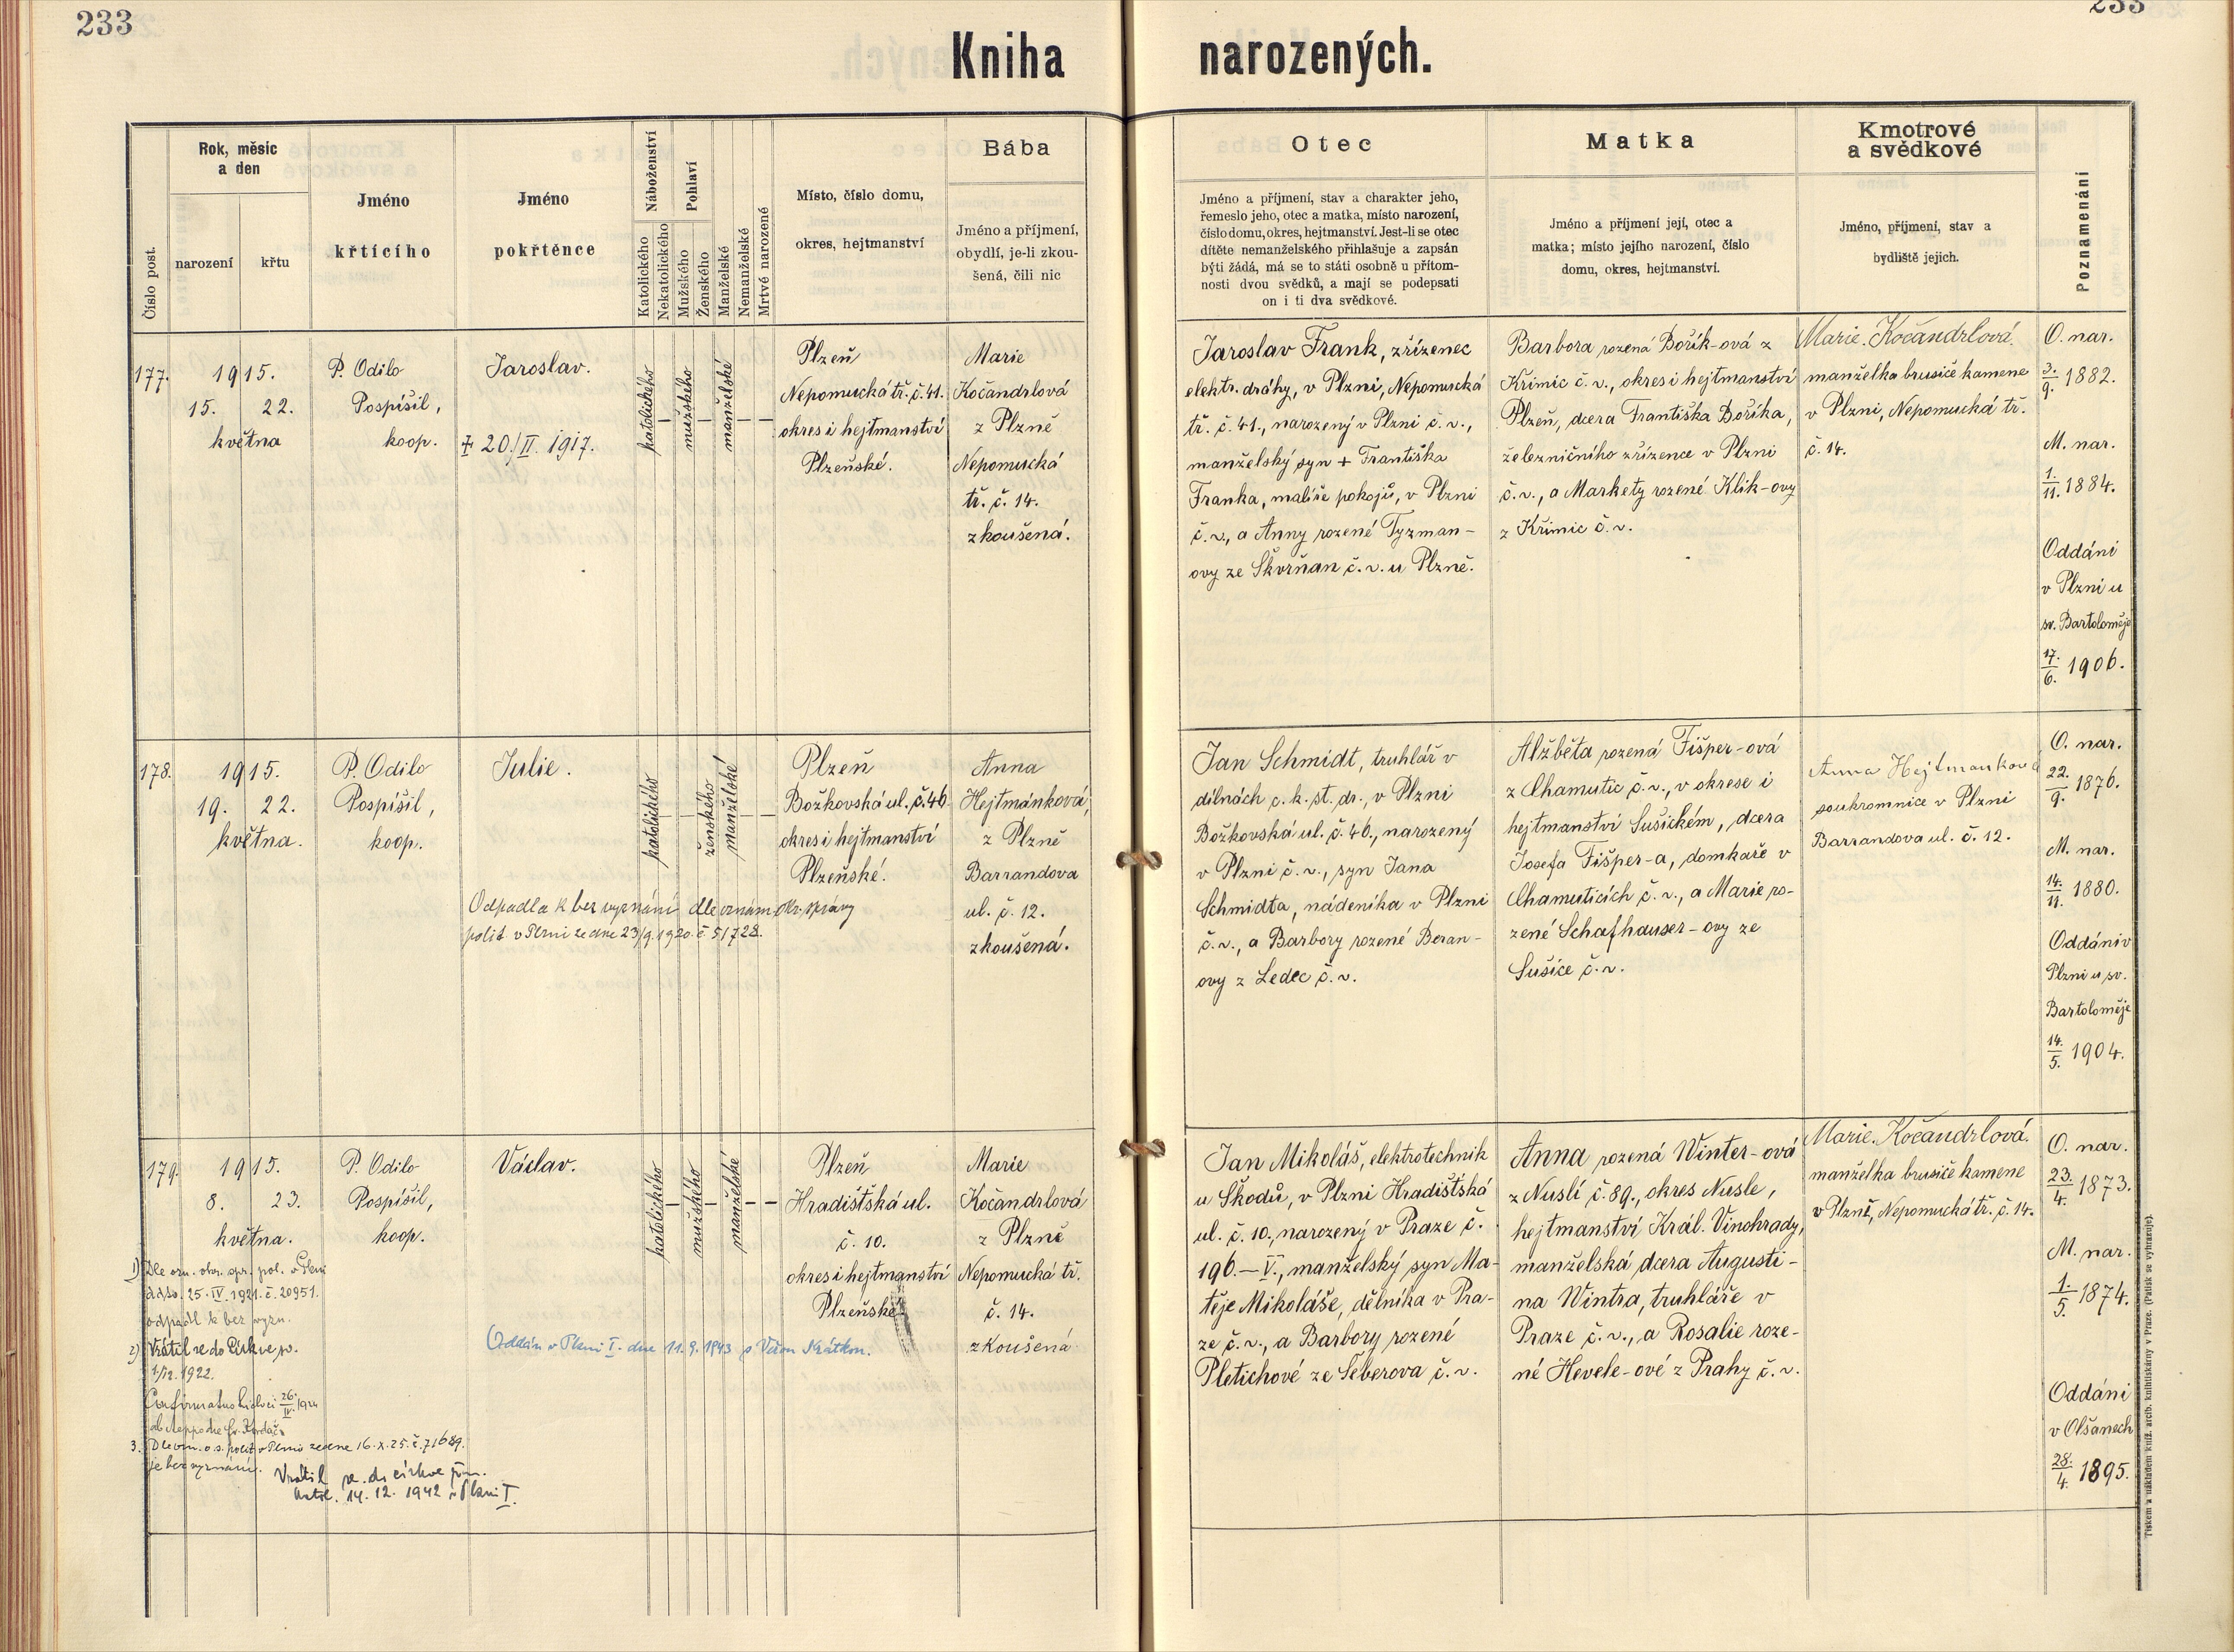 233
233
Kniha narozených.
Číslo post.
Rok, měsíc
a den
narození
křtu
Jméno
křtícího
Jméno
pokřtěnce
Náboženství
Katolického
Nekatolického
Pohlaví
Mužského
Ženského
Manželské
Nemanželské
Mrtvě narozené
Místo, číslo domu,
okres, hejtmanství
Bába
Jméno a příjmení,
obydlí, je-li zkou-
šená, čili nic
Otec
Jméno a příjmení, stav a charakter jeho,
řemeslo jeho, otec a matka, místo narození,
číslo domu, okres, hejtmanství. Jest-li se otec
dítěte nemanželského přihlašuje a zapsán
býti žádá, má se to státi osobně u přítom-
nosti dvou svědků, a mají se podepsati
on i ti dva svědkové.
Matka
Jméno a příjmení její, otec a
matka; místo jejího narození, číslo
domu, okres, hejtmanství.
Kmotrové
a svědkové
Jméno, příjmení, stav a
bydliště jejich.
Poznamenání
177.
1915.
15. 22.
května
P. Odilo
Pospíšil,
koop.
Jaroslav.
+ 20./II. 1917.
katolického
—
mužského
—
manželské
— —
Plzeň
Nepomucká tř. č. 41.
okres i hejtmanství
Plzeňské.
Marie
Kočandrlová
z Plzně
Nepomucká
tř. č. 14.
zkoušená.
Jaroslav Frank, zřízenec
elektr. dráhy, v Plzni, Nepomucká
tř. č. 41., narozený v Plzni č. v.,
manželský syn + Františka
Franka, malíře pokojů, v Plzni
č. v., a Anny rozené Tyzman-
ovy ze Škvrňan č. v. u Plzně.
Barbora rozená Bořík-ová z
Křimic č. v., okres i hejtmanství
Plzeň, dcera Františka Boříka,
železničního zřízence v Plzni
č. v., a Markety rozené Klik-ovy
z Křimic č. v.
Marie Kočandrlová
manželka brusiče kamene
v Plzni, Nepomucká tř.
č. 14.
O. nar.
3./9. 1882.
M. nar.
1./11. 1884.
Oddáni
v Plzni u
sv. Bartoloměje
17./6. 1906.
178.
1915.
19. 22.
května.
P. Odilo
Pospíšil,
koop.
Julie.
katolického
—
—
ženského
manželské
— —
Plzeň
Božkovská ul. č. 46
okres i hejtmanství
Plzeňské.
Odpadla k bez vyznání dle oznám. okr. správy
polit. v Plzni ze dne 23/9.1920. č. 51728.
Anna
Hejtmánková,
z Plzně
Barrandova
ul. č. 12.
zkoušená.
Jan Schmidt, truhlář v
dílnách c. k. st. dr., v Plzni
Božkovská ul. č. 46., narozený
v Plzni č. v., syn Jana
Schmidta, nádeníka v Plzni
č. v., a Barbory rozené Beran-
ovy z Ledec č. v.
Alžběta rozená Fišper-ová
z Chamutic č. v., v okrese i
hejtmanství Sušickém, dcera
Josefa Fišper-a, domkaře v
Chamuticích č. v., a Marie ro-
zené Schafhauser-ovy ze
Sušice č. v.
Anna Hejtmanková
soukromnice v Plzni
Barrandova ul. č. 12.
O. nar.
22./9. 1876.
M. nar.
14./11. 1880.
Oddáni v
Plzni u sv.
Bartoloměje
14./5. 1904.
179.
1915.
8. 23.
května.
P. Odilo
Pospíšil,
koop.
Václav.
katolického
—
mužského
—
manželské
— —
Plzeň
Hradištská ul.
č. 10.
okres i hejtmanství
Plzeňské
Marie
Kočandrlová
z Plzně
Nepomucká tř.
č. 14.
zkoušená
Jan Mikoláš, elektrotechnik
u Škodů, v Plzni Hradištská
ul. č. 10., narozený v Praze č.
196.—V., manželský syn Ma-
těje Mikoláše, dělníka v Pra-
ze č. v., a Barbory rozené
Pletichové ze Šeberova č. v.
Anna rozená Winter-ová
z Nuslí č. 89., okres Nusle,
hejtmanství Král. Vinohrady,
manželská dcera Augusti-
na Wintra, truhláře v
Praze č. v., a Rosalie roze-
né Hevele-ové z Prahy č. v.
Marie Kočandrlová.
manželka brusiče kamene
v Plzně, Nepomucká tř. č. 14.
O. nar.
23./4. 1873.
M. nar.
1./5. 1874.
Oddáni
v Olšanech
28./4. 1895.
1) Dle ozn. okr. spr. pol. v Plzni
ddto. 25. IV. 1921. č. 20951.
odpadl k bez vyzn.
2) Vrátil se do Církve sv.
1/12. 1922.
26./IV. 1924
3. Dle ozn. o. s. polit. v Plzni ze dne 16. X. 25. č. 71689.
je bez vyznání.
Vrátil se do církve řím.
katol. 14. 12. 1942 v Plzni I.
Oddán v Plzni I. dne 11. 9. 1943 s Věrou Krátkou.
Tiskem a nákladem kníž. arcib. knihtiskárny v Praze. (Patisk se vyhrazuje).